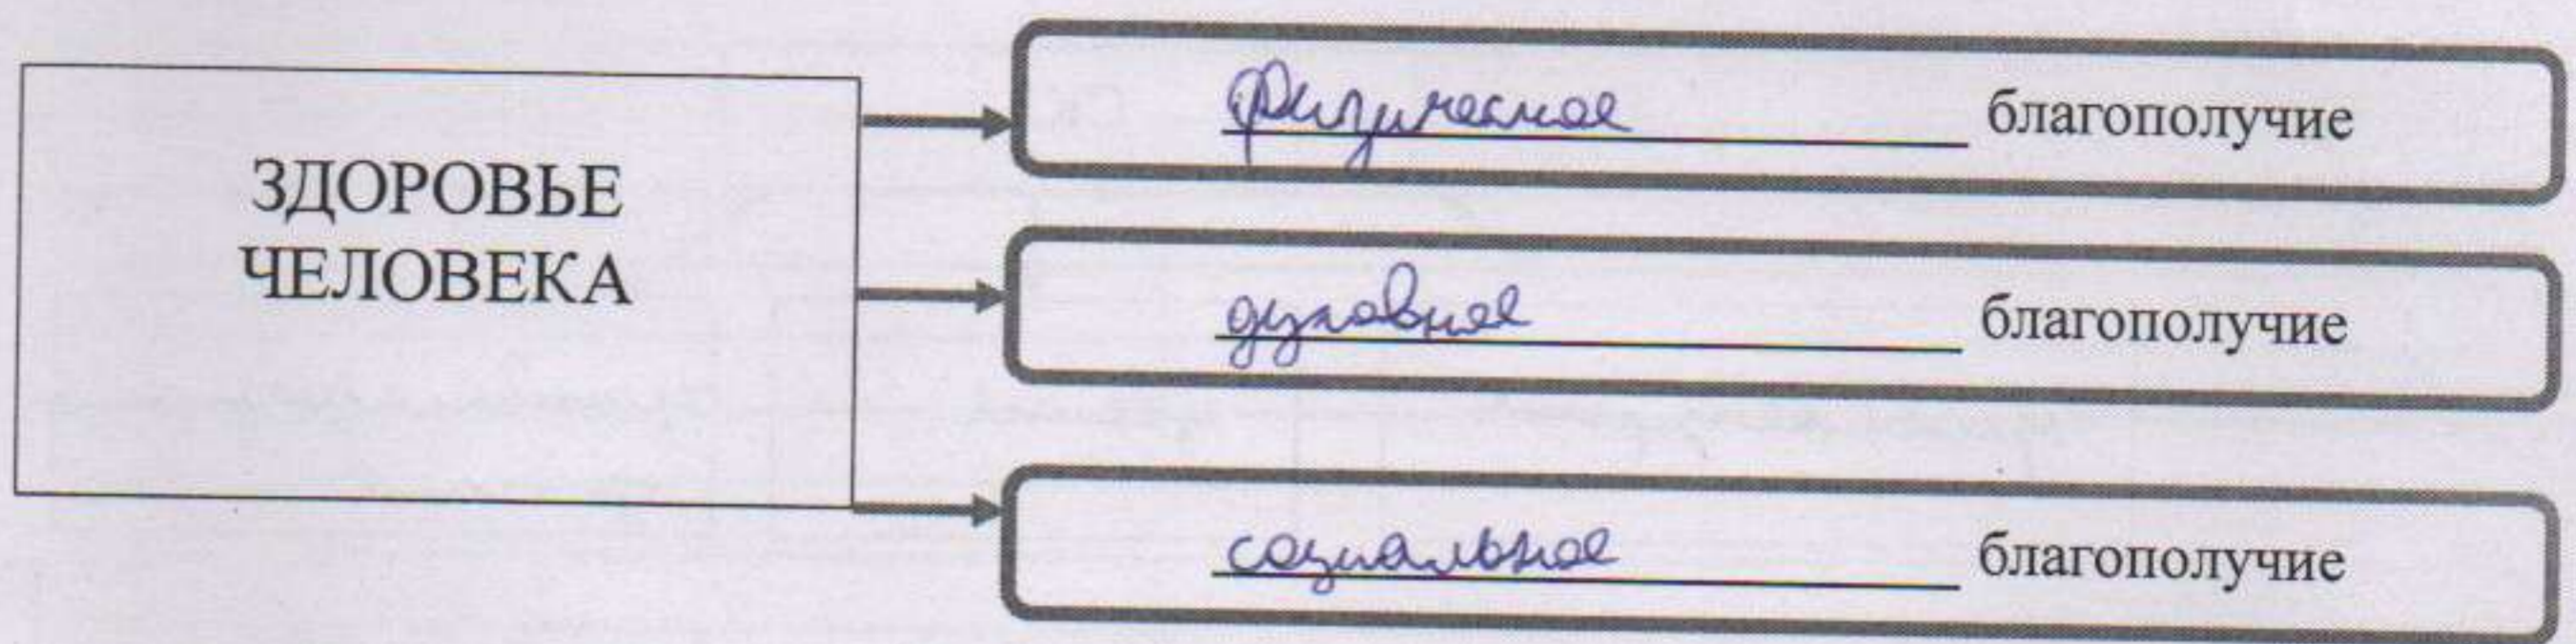 ЗДОРОВЬЕ
ЧЕЛОВЕКА
физическое благополучие
духовное благополучие
социальное благополучие